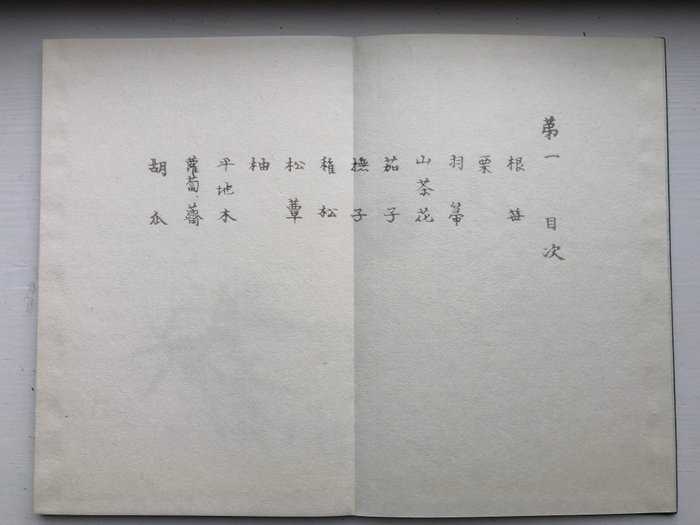 第一 目次
根笹
栗
羽箒
山茶花
茄子
橅子
稚松
松蕈
柚
平地木
蘿蔔、薺
胡瓜